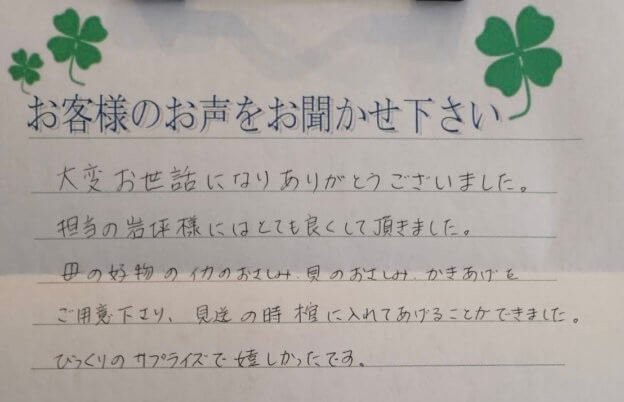 お客様のお声をお聞かせ下さい
大変お世話になりありがとうございました。
担当の岩坪様にはとても良くして頂きました。
母の好物のイカのおさしみ、貝のおさしみ、かきあげを
ご用意下さり、見送の時棺に入れてあげることができました。
びっくりのサプライズで嬉しかったです。